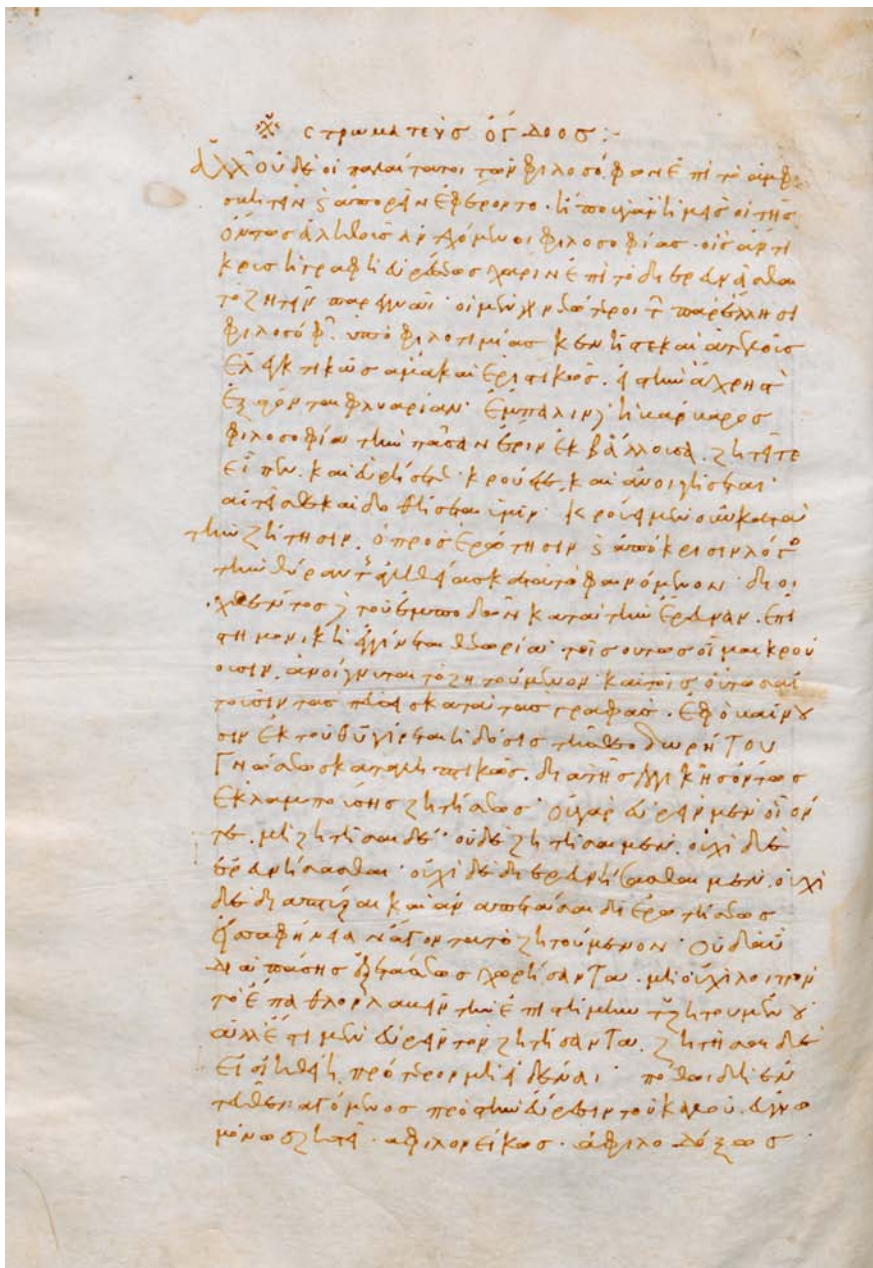 στρωματεὺς ὄγδοος :-
ἀλλ' οὐδὲ οἱ παλαίτατοι τῶν φιλοσόφων ἐπὶ τὸ ἀμφι
σβητεῖν καὶ ἀπορεῖν ἐφέροντο· ἤ που γὰρ ἡμᾶς οἱ τῆς
ὄντως ἀληθοῦς ἀντεχόμενοι φιλοσοφίας· οἷς ἄντι
κρυς ἡ γραφὴ εὑρέσεως χάριν ἐπὶ τὸ διερευνᾶσθαι
τὸ ζητεῖν παρεγγυᾶι· οἱ μὲν γὰρ νεώτεροι τῶν παρ' ἕλλησι
φιλοσόφων ὑπὸ φιλοτιμίας κενῆς τε καὶ ἀτελοῦς
ἐλεγκτικῶς ἅμα καὶ ἐριστικῶς. εἰς τὴν ἄχρηστον
ἐξάγονται φλυαρίαν· ἔμπαλιν δὲ ἡ βάρβαρος
φιλοσοφία τὴν πᾶσαν ἔριν ἐκβάλλουσα. ζητεῖτε
εἶπεν. καὶ εὑρήσετε· κρούετε. καὶ ἀνοιγήσεται·
αἰτεῖσθε καὶ δοθήσεται ὑμῖν· κρούει μὲν οὖν κατὰ
τὴν ζήτησιν. ὁ πρὸς ἐρώτησιν καὶ ἀπόκρισιν λόγος
τὴν θύραν τῆς ἀληθείας κατὰ τὸ φαινόμενον· διοι
χθέντος δὲ τοῦ ἐμποδὼν κατὰ τὴν ἔρευναν. ἐπι
στημονικὴ ἐγγίνεται θεωρία· τοῖς οὕτως οἶμαι κρού
ουσιν. ἀνοίγνυται τὸ ζητούμενον· καὶ τοῖς οὕτως αἰ
τοῦσιν τὰς πεύσεις κατὰ τὰς γραφάς. ἐφ' ὃ βαίνου
σιν ἐκ τοῦ θυ γίνεται ἡ δόσις τῆς θεοδωρήτου
γνώσεως καταληπτικῶς. διὰ τῆς λογικῆς ὄντως
ἐκλαμπούσης ζητήσεως· οὐ γὰρ εὑρεῖν μὲν οἷόν
τε. μὴ ζητῆσαι δέ· οὐδὲ ζητῆσαι μέν. οὐχὶ δὲ
ἐρευνήσασθαι· οὐχὶ δὲ διερευνήσασθαι μέν. οὐχὶ
δὲ διαπτύξαι καὶ ἀναπετάσαι δι' ἐρωτήσεως
εἰς σαφήνειαν ἄγοντα τὸ ζητούμενον· οὐδ' αὖ
διὰ πάσης ἐξετάσεως χωρήσαντα. μὴ οὐχὶ λοιπὸν
τὸ ἔπαθλον λαβεῖν τὴν ἐπιστήμην τοῦ ζητουμένου·
ἀλλ' ἔστι μὲν εὑρεῖν τὸν ζητήσαντα. ζητῆσαι δὲ
εἰ οἰηθείη πρότερον μὴ εἰδέναι· πόθωι δὴ ἐν
τεῦθεν ἀγόμενος πρὸς τὴν εὕρεσιν τοῦ καλοῦ. εὐγνω
μόνως ζητεῖ· ἀφιλονείκως· ἀφιλοδόξως·